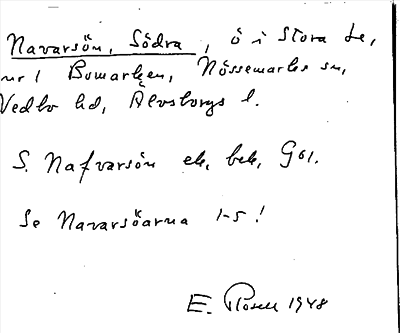 Navarsön, Södra, ö i Stora Le,
nr 1 Bomarken, Nössemarks sn,
Vedbo hd, Älvsborgs l.
S. Nafvarsön ek. bek. G61.
Se Navarsöarna 1-5!
E. Rosell 1948